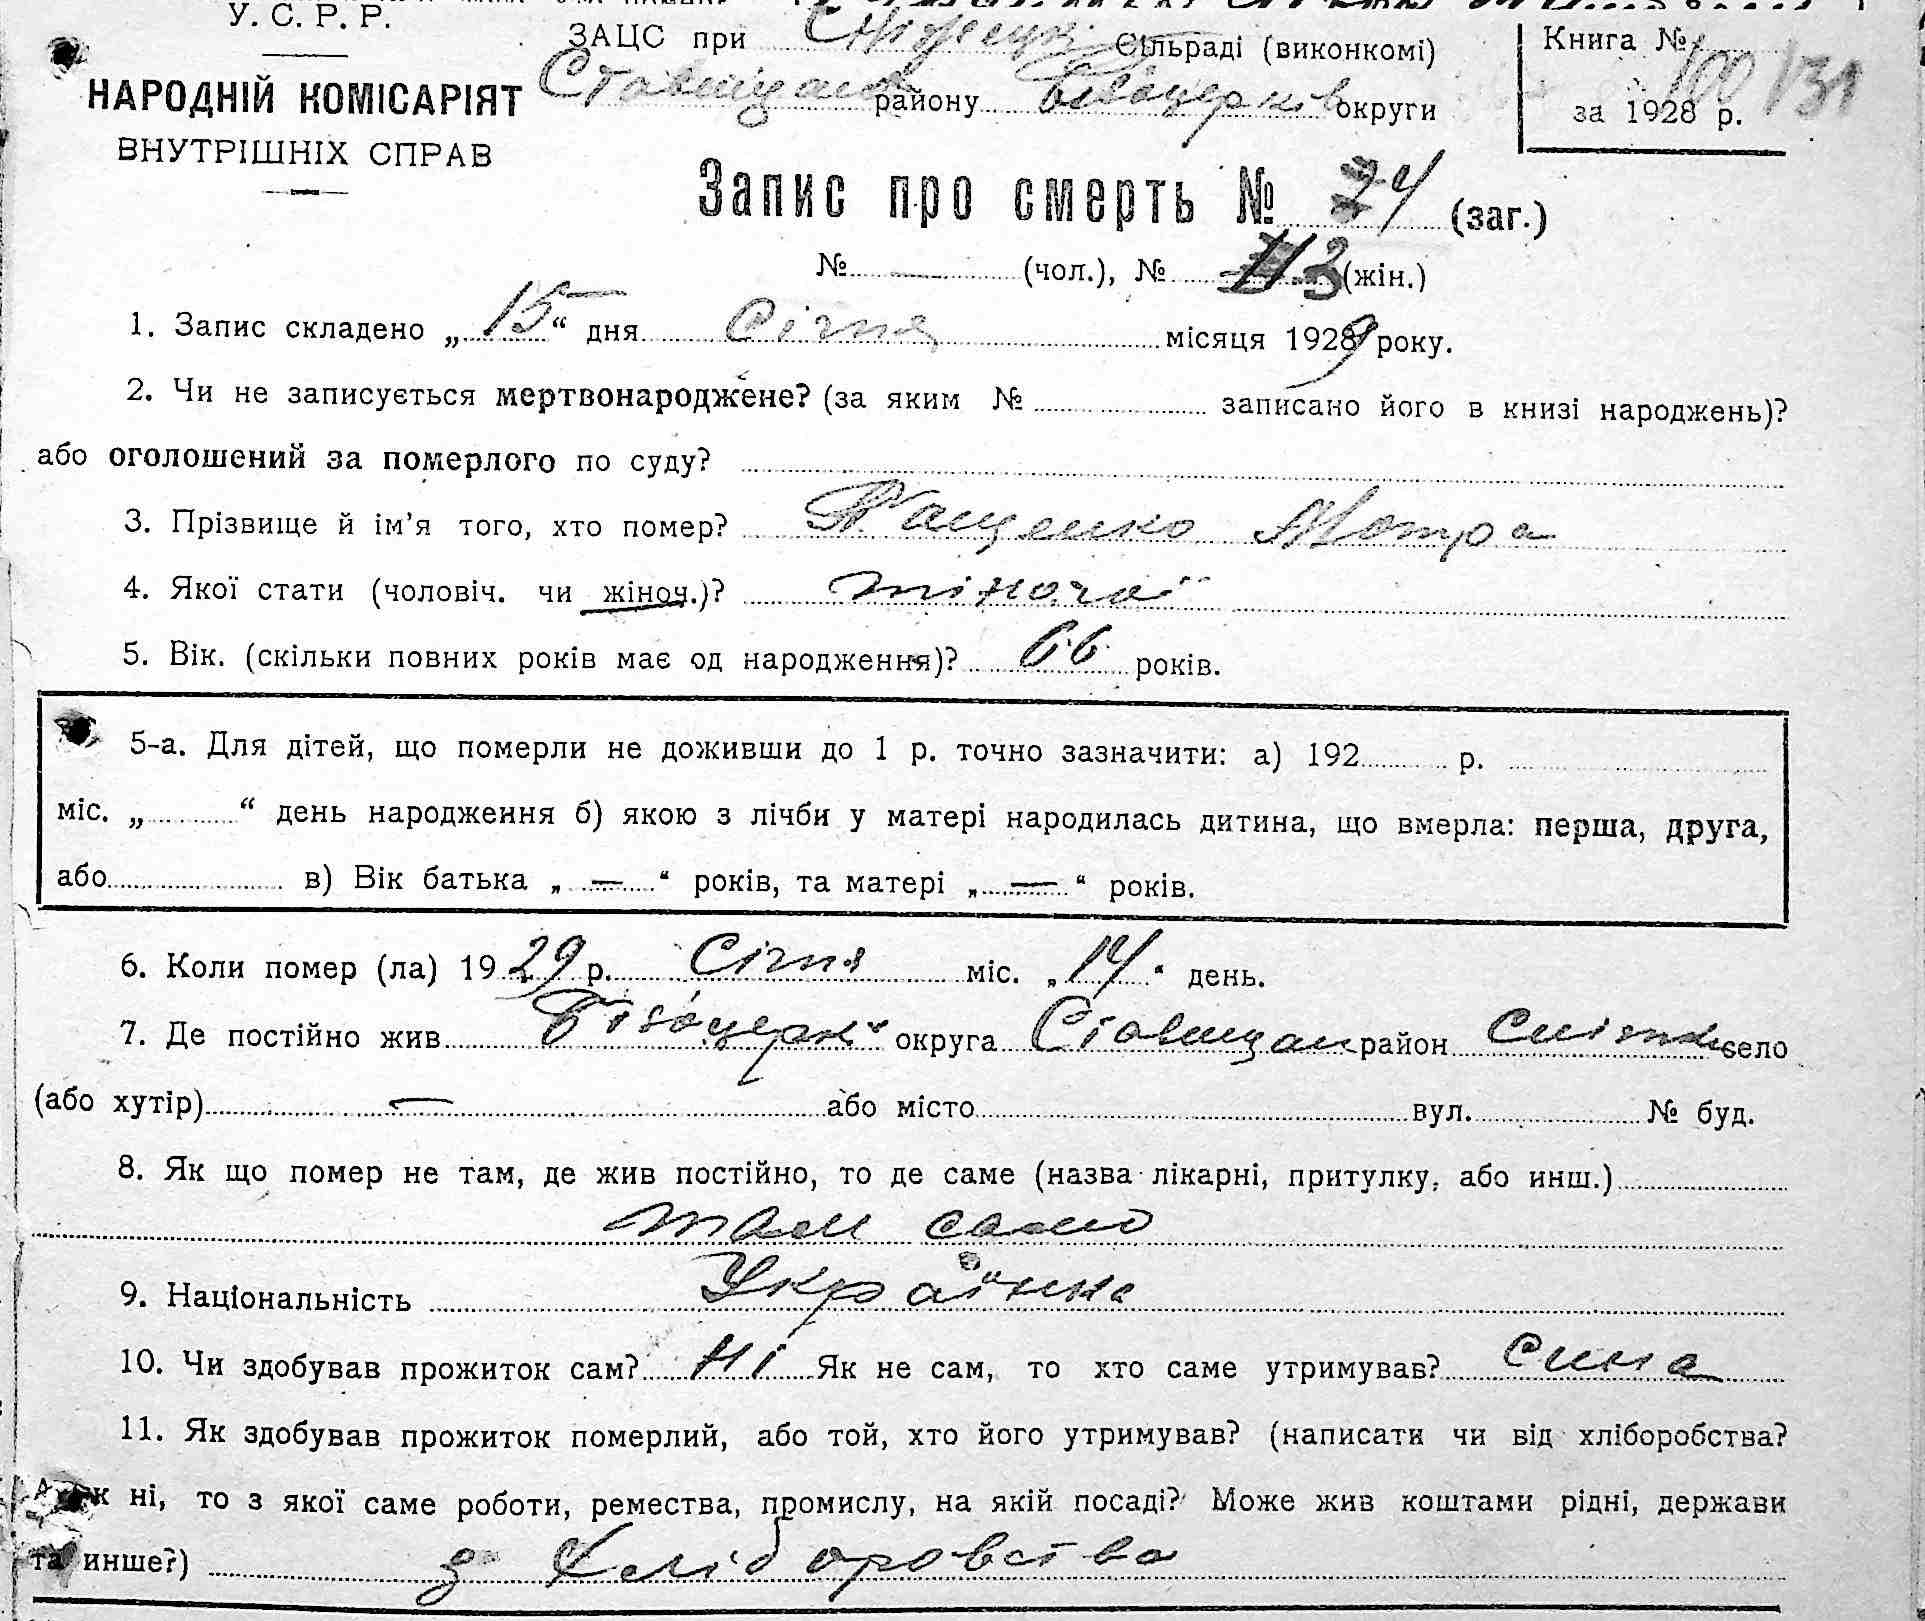 У. С. Р. Р.
НАРОДНІЙ КОМІСАРІЯТ
ВНУТРІШНІХ СПРАВ
ЗАЦС при Сільраді (виконкомі)
Ставищан району Білоцерків округи
Книга № 100/31
за 1928 р.
Запис про смерть № 74 (заг.)
№ — (чол.), № 3 (жін.)
1. Запис складено „15“ дня Січня місяця 1929 року.
2. Чи не записується мертвонароджене? (за яким № записано його в книзі народжень)?
або оголошений за померлого по суду?
3. Прізвище й ім’я того, хто помер? Пащенко Мотря
4. Якої стати (чоловіч. чи жіноч.)? жіночої
5. Вік. (скільки повних років має од народження)? 66 років.
5-а. Для дітей, що померли не доживши до 1 р. точно зазначити: а) 192 р.
міс. „ “ день народження б) якою з лічби у матері народилась дитина, що вмерла: перша, друга,
або в) Вік батька „ — “ років, та матері „ — “ років.
6. Коли помер (ла) 1929 р. Січня міс. „14“ день.
7. Де постійно жив Білоцерк округа Ставищан район село
(або хутір) — або місто вул. № буд.
8. Як що помер не там, де жив постійно, то де саме (назва лікарні, притулку, або инш.)
там само
9. Національність Українка
10. Чи здобував прожиток сам? Ні Як не сам, то хто саме утримував? сина
11. Як здобував прожиток померлий, або той, хто його утримував? (написати чи від хліборобства?
А як ні, то з якої саме роботи, ремества, промислу, на якій посаді? Може жив коштами рідні, держави
та инше?) з Хліборобства